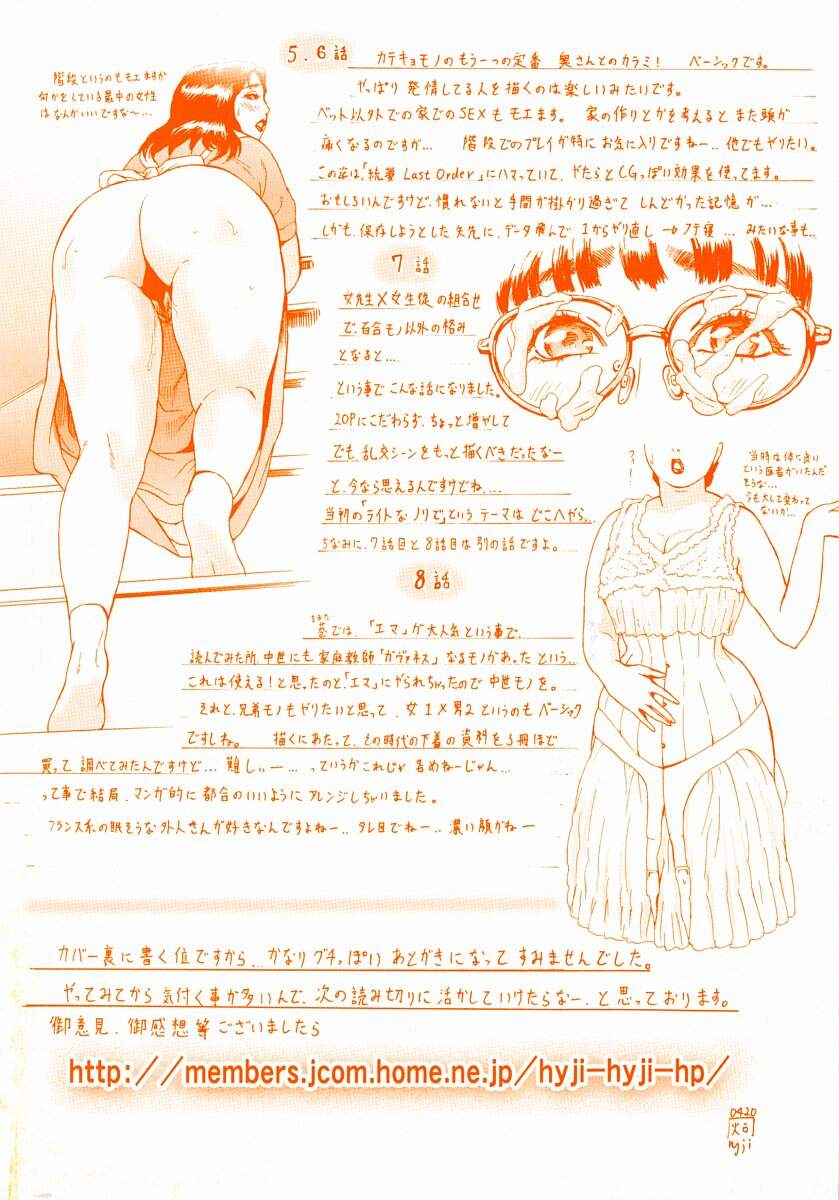 5.6話
カテキョモノのもう一つの定番 奥さんとのカラミ! ベーシックです。
階段というのもモエますか
何かをしている最中の女性
はなんかいいですな〜…
やっぱり 発情してる人を描くのは楽しいみたいです。
ベット以外での家でのSEXも モエます。 家の作りとかを考えると また頭が
痛くなるのですが… 階段でのプレイが特にお気に入りですねー.. 他でもやりたい。
この姿は「銃着 Last Order」にハマっていて、やたらとCGっぽい効果を使ってます。
おもしろいんですけど、慣れないと手間が掛かり過ぎて しんどかった記憶が…
しかも、保存しようとした矢先に、データ飛んで 1からやり直し → フテ寝 … みたいな事も..
7話
女先生×女生徒の組合せ
で、百合モノ以外の絡み
となると….
という事でこんな話になりました。
20Pにこだわらず、ちょっと増やして
でも、乱交シーンをもっと描くべきだったなー
と、今なら思えるんですけどね、…
当初の「ライトなノリで」というテーマは どこへやら…
ちなみに、7話目と8話目は別の話ですよ。
フィ〜!
当時は体に良い
という医者がいたんだ
そうな…
今も大して変わって
ないか!…
8話
ちまた
巷では、「エマ」が大人気という事で、
読んでみた所、中世にも家庭教師「ガヴァネス」なるモノがあったという..
これは使える!と思ったのと、「エマ」にヤられちゃったので中世モノを。
それと、兄弟モノもやりたいと思って、女1×男2というのもベーシック
ですしね。 描くにあたって、その時代の下着の資料を3冊ほど
買って調べてみたんですけど… 難しぃー… っていうかこれじゃ 萌めねーじゃん…
って事で結局、マンガ的に都合のいいように アレンジしちゃいました。
フランス系の眠そうな外人さんが好きなんですよねー.. タレ目でねー.. 濃い顔がねー
カバー裏に書く位ですから… かなりグチっぽい あとがきになって すみませんでした。
やってみてから気付く事が多いんで、次の読み切りに活かしていけたらなー、と思っております。
御意見、御感想等ございましたら
http://members.jcom.home.ne.jp/hyji-hyji-hp/
0420
hyji